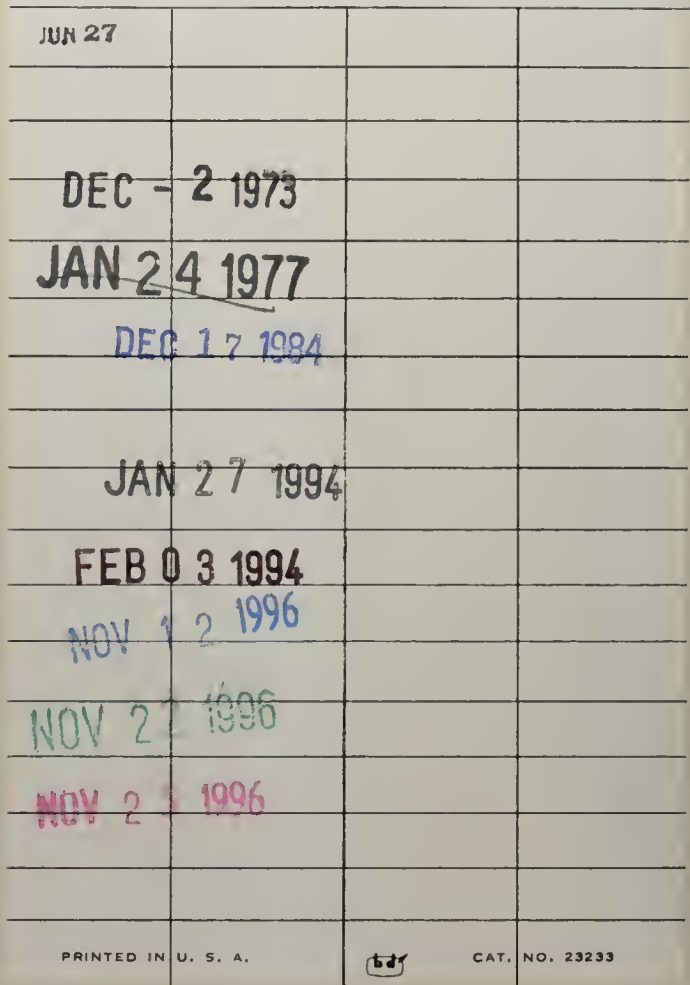 JUN 27
DEC - 2 1973
JAN 24 1977
DEC 17 1984
JAN 27 1994
FEB 03 1994
NOV 12 1996
NOV 1996
NOV 1996
PRINTED IN U. S. A. CAT. NO. 23233